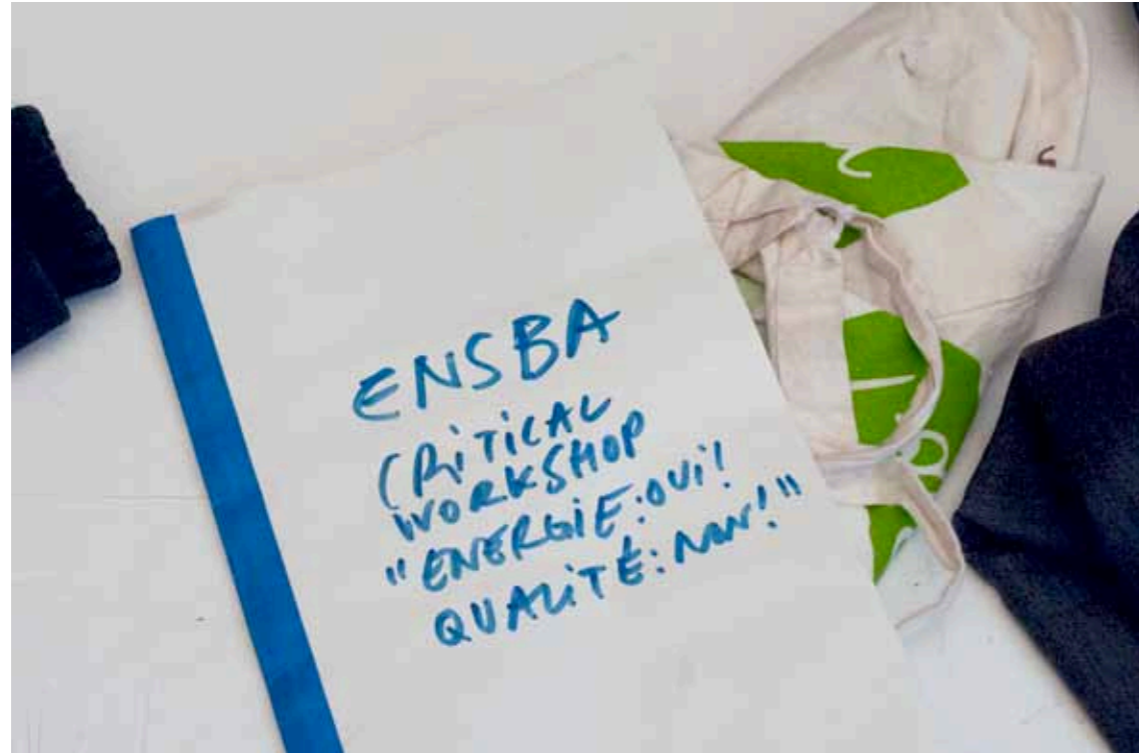 ENSBA
CRiTiCAL
WORKSHOP
"ENERGiE: OUi!
QUALiTÉ: NON!"